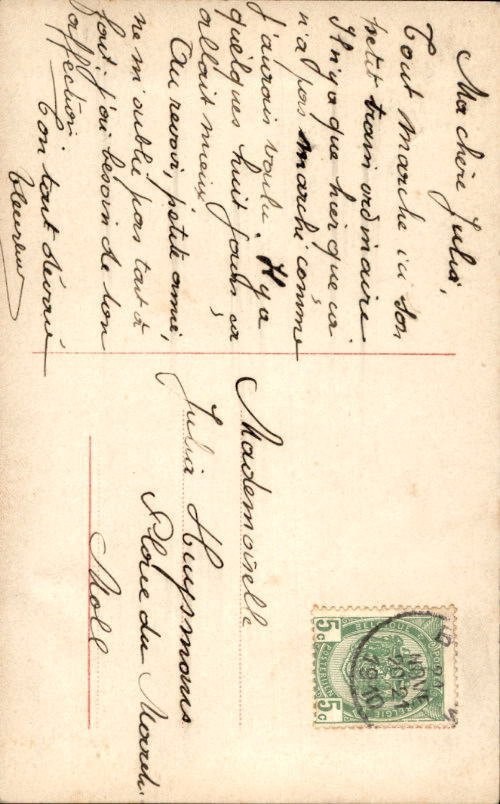 Ma chère Julia,
Tout marche ici son
petit train ordinaire
Il n'y a que hier que ça
n'a pas marché comme
j'aurais voulu. Il y a
quelques huit jours ça
allait mieux
Au revoir, petite amie,
ne m'oublie pas tout à
fait; j'ai besoin de ton
affection
Ton tout dévoué
Mademoiselle
Julia Huysmans
Place du March.
Moll
5c
5c
BELGIE
POSTERIJEN
NOV
20-21
1910